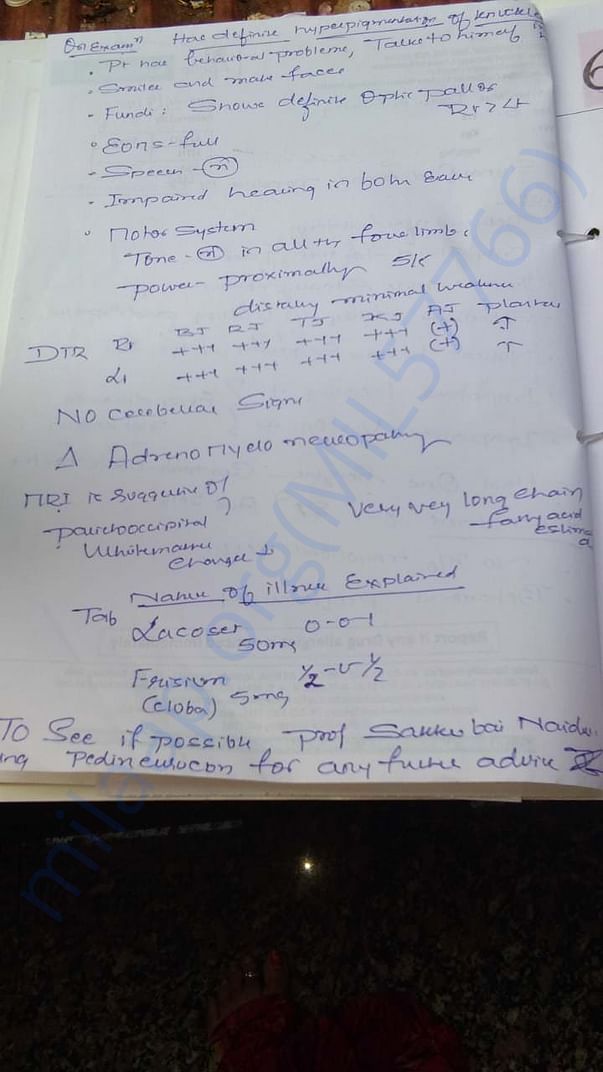 On Examn Has definite hyperpigmentation of knuckles
• Pt has behavioral problems, Talks to himself
• Smiles and make faces
• Fundi: Shows definite Optic pallor
Rt > Lt
• Eoms - full
• Speech - (N)
• Impaired hearing in both Ears
• Motor System
Tone - (N) in all the four limbs
Power - Proximally 5/5
distally minimal weakness
BJ RJ TJ KJ AJ Plantar
DTR Rt +++ +++ +++ +++ (+) ↑
Lt +++ +++ +++ +++ (+) ↑
No Cerebellar Signs
Δ Adreno Myelo neuropathy
MRI is suggestive of
parietooccipital
Whitematter
changes
Very very long chain
fatty acid
Nature of illness Explained
Tab Lacoset 0-0-1
50mg
Frisium ½-0-½
(cloba) 5mg
To See if possible Prof Sakkubai Naidu
Pedineurocon for any future advice
milaap.org(MIL577766)
6
Report if any Drug allergy